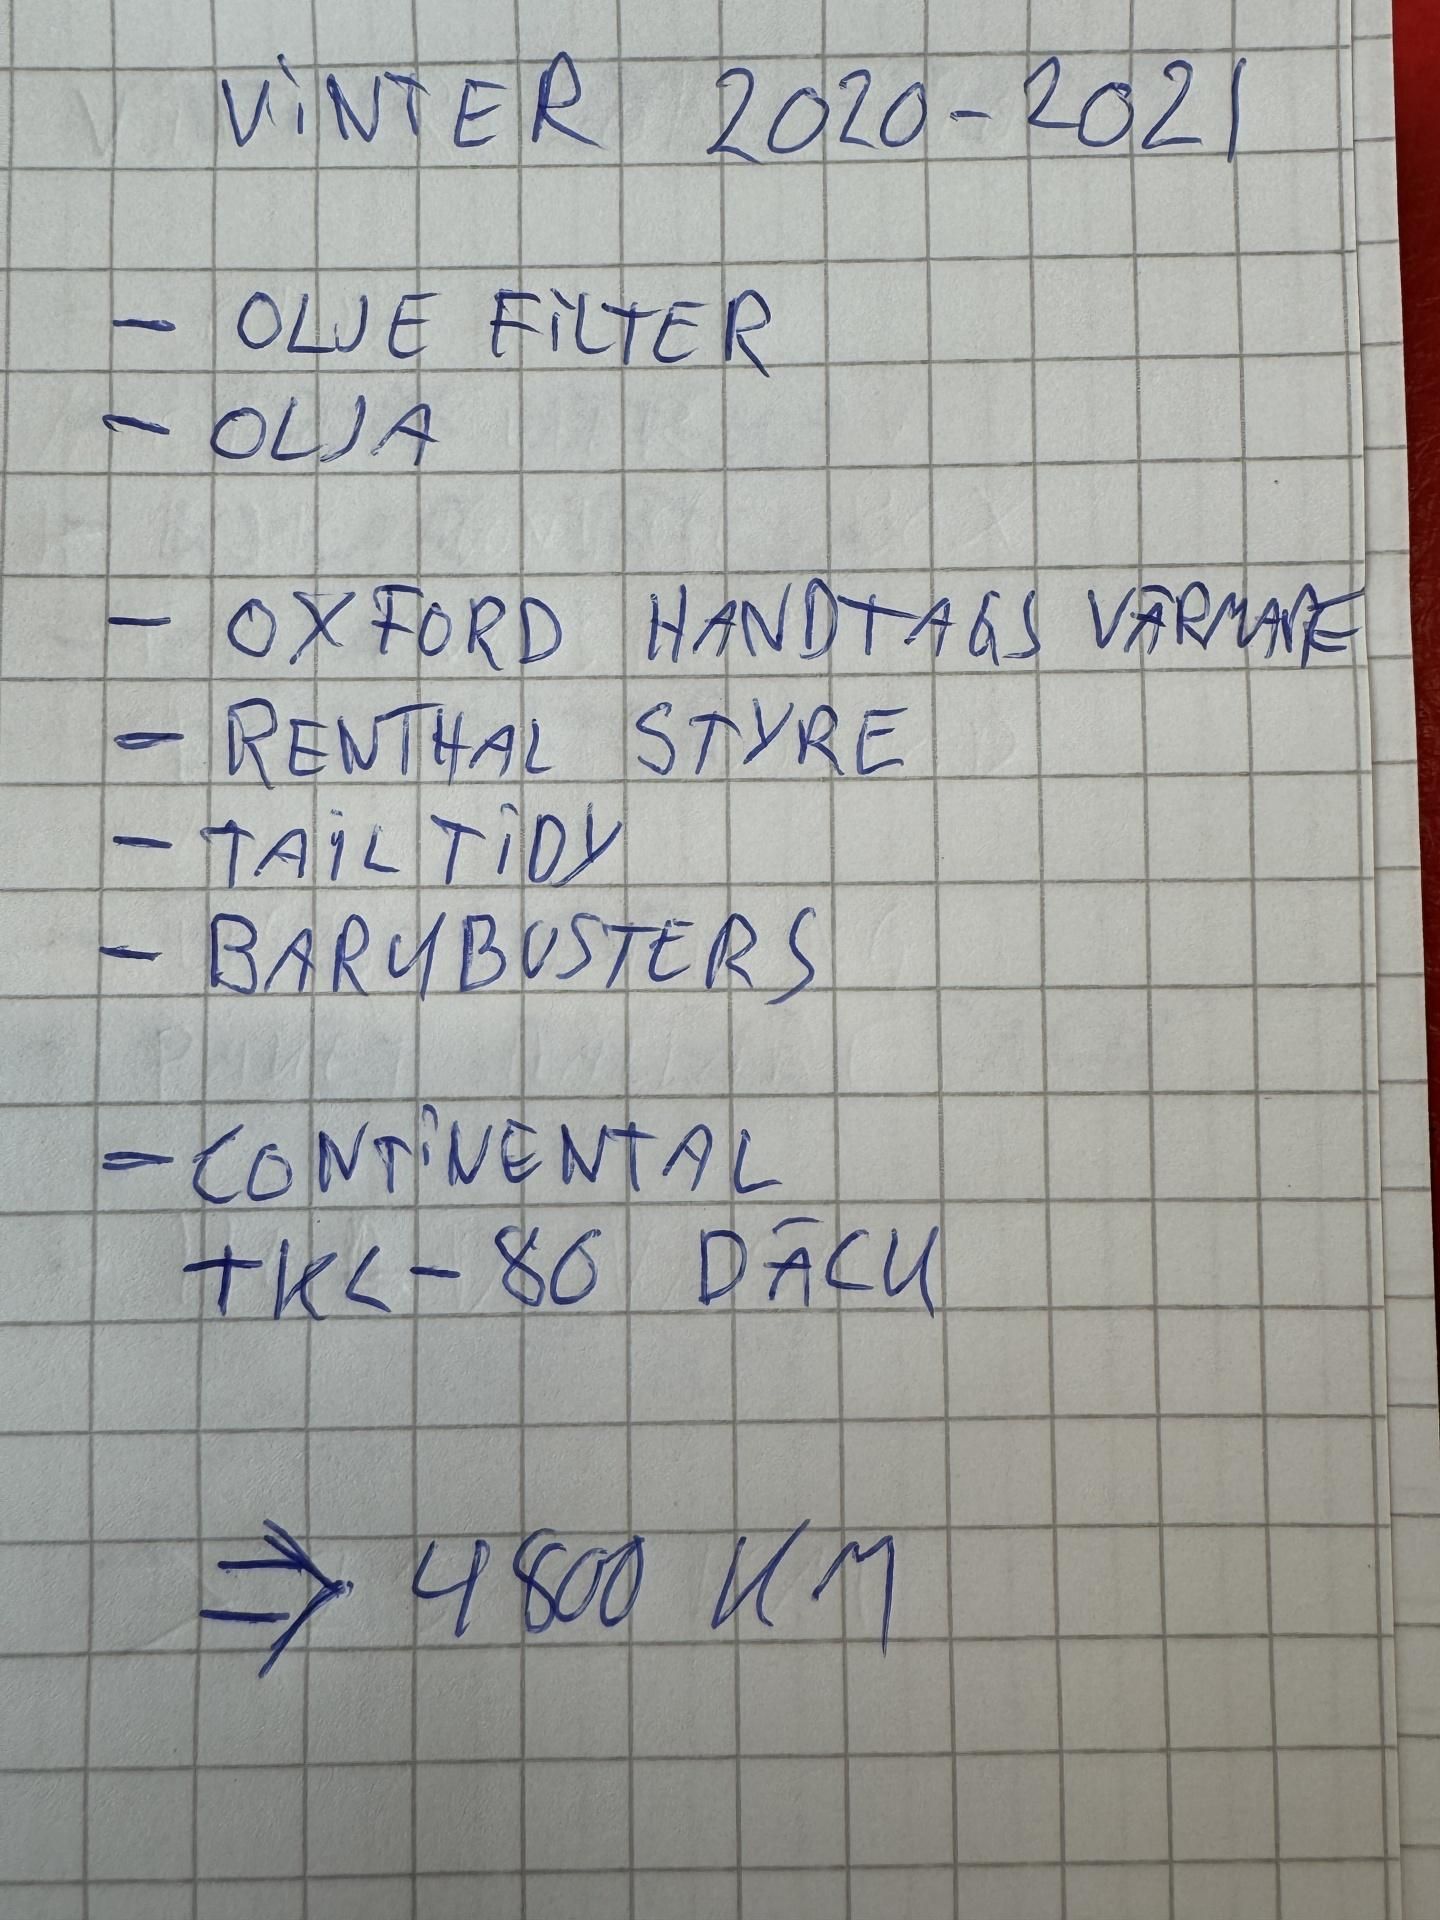 VINTER 2020-2021
- OLJE FILTER
- OLJA
- OXFORD HANDTAGS VÄRMARE
- RENTHAL STYRE
- TAIL TIDY
- BARKBUSTERS
- CONTINENTAL
TKC-80 DÄCK
⇒ 4800 KM